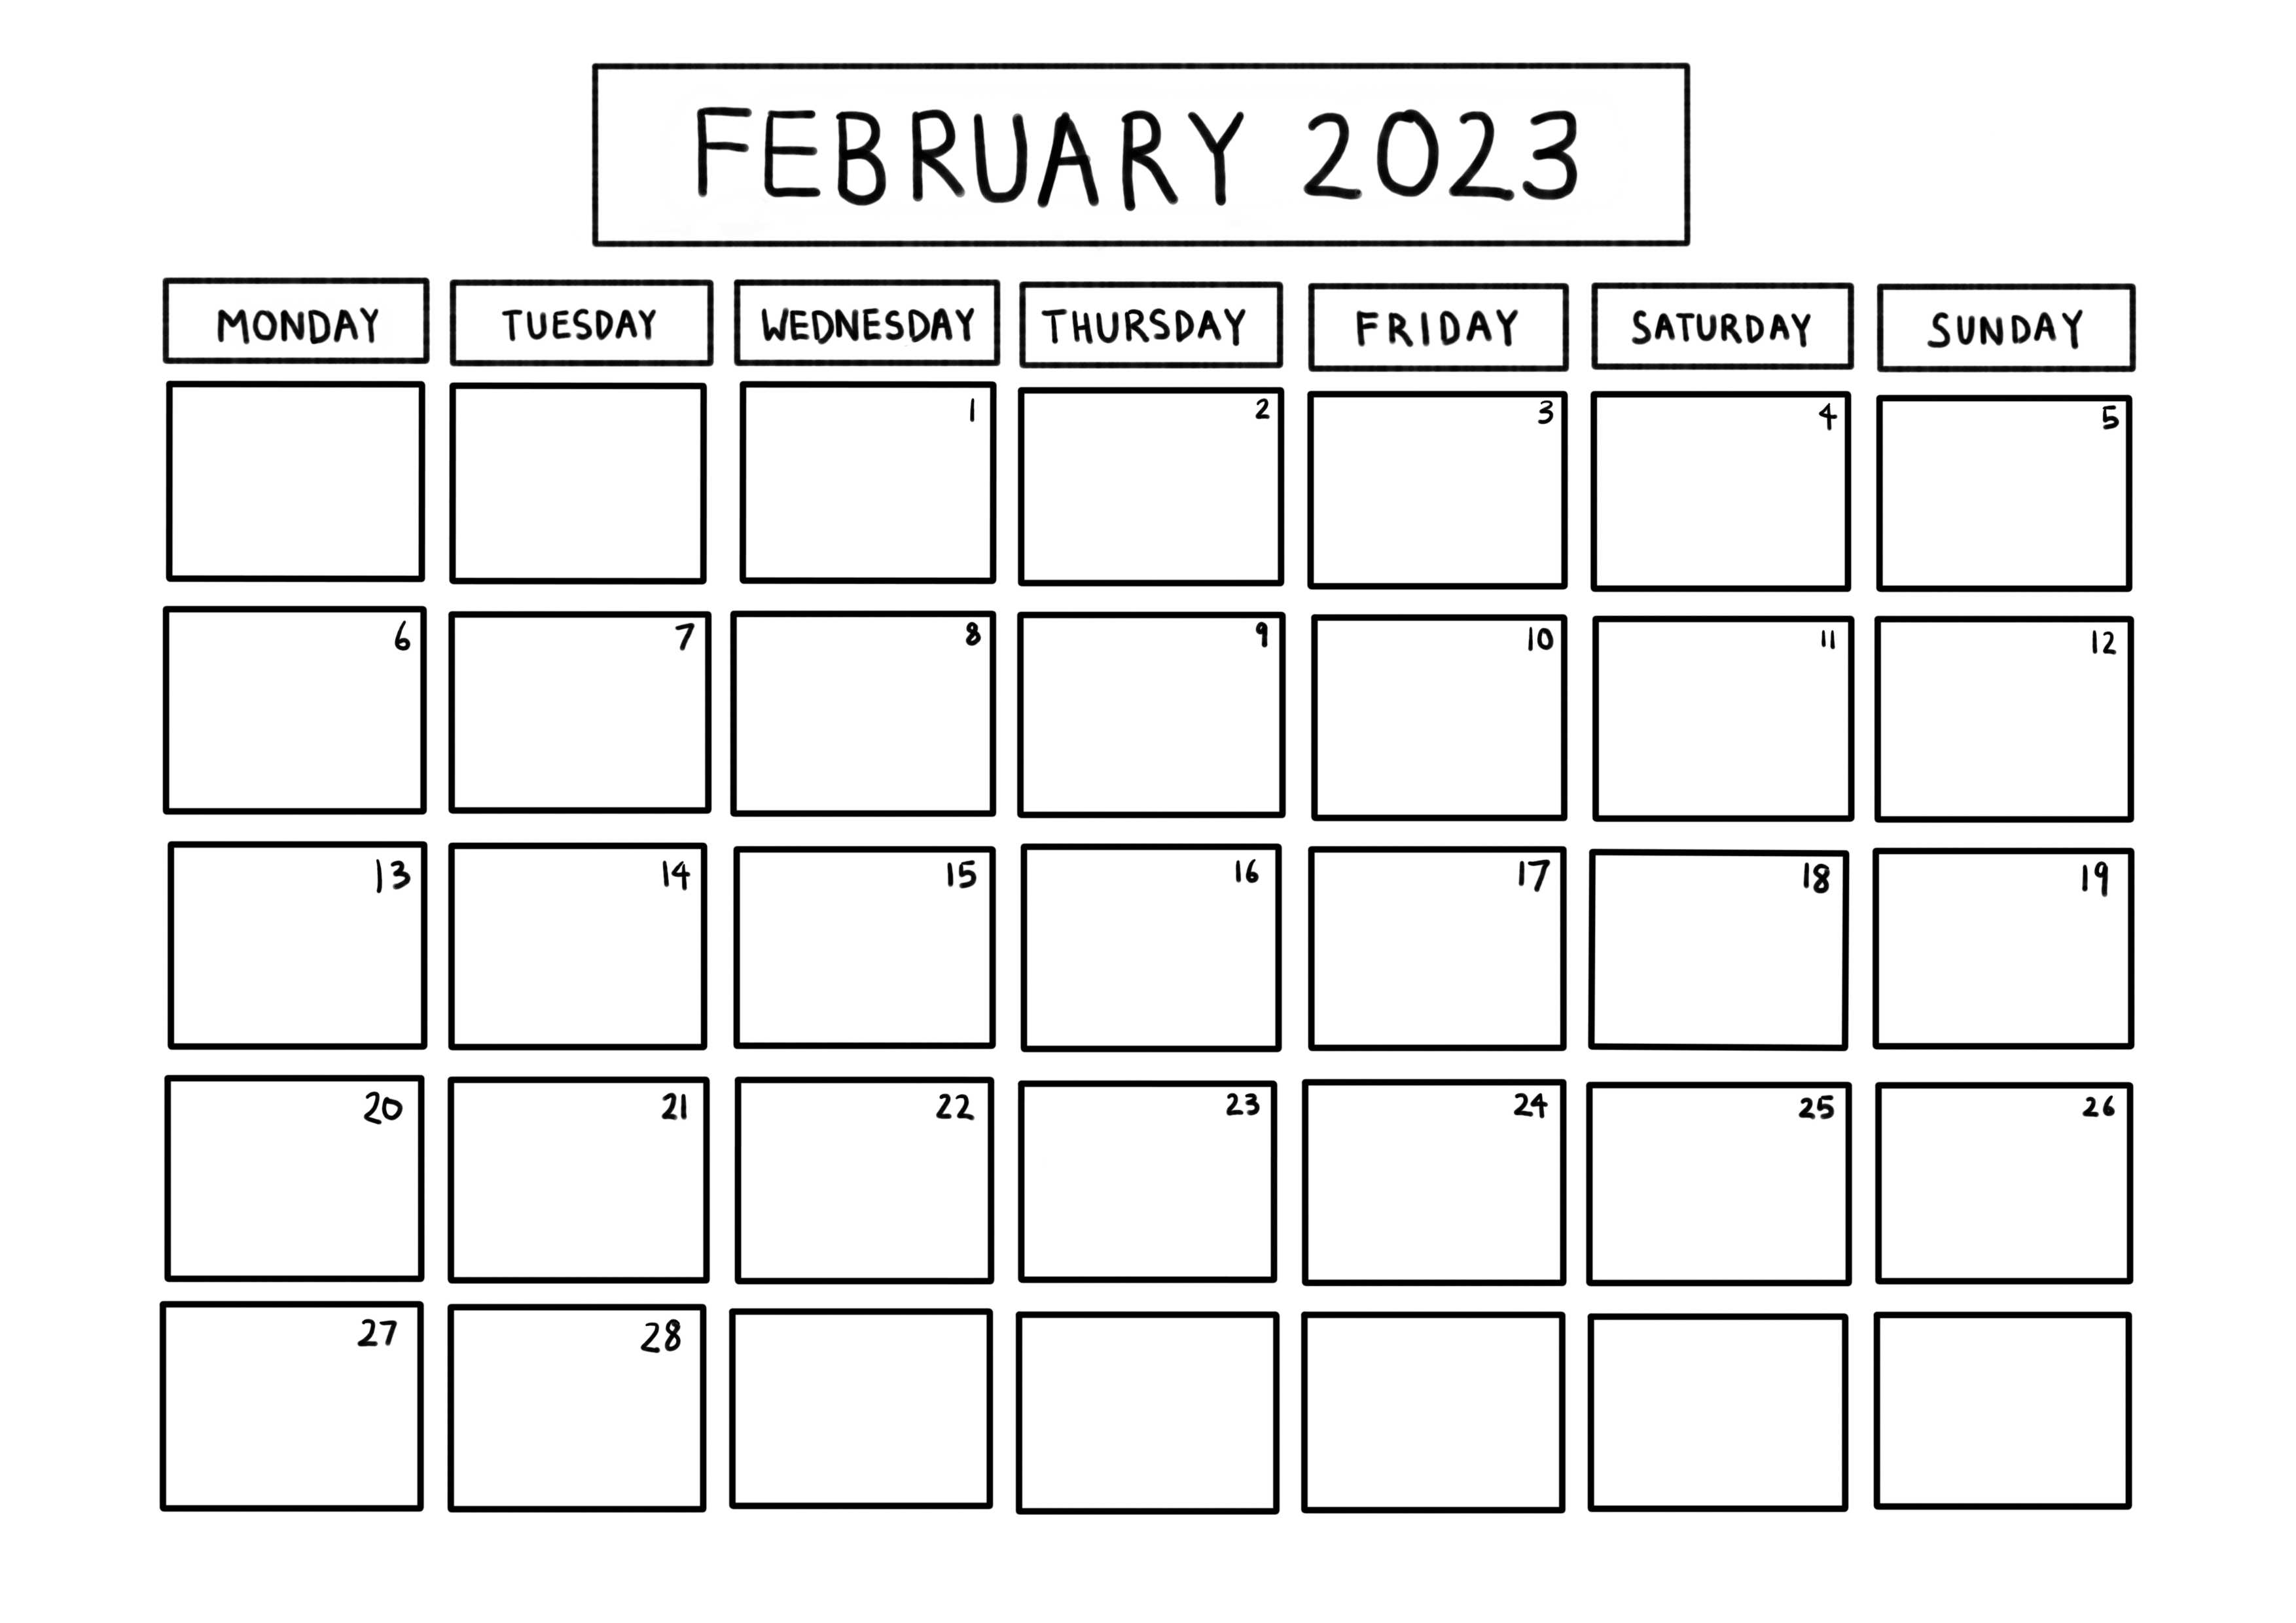 FEBRUARY 2023
MONDAY TUESDAY WEDNESDAY THURSDAY FRIDAY SATURDAY SUNDAY
1 2 3 4 5
6 7 8 9 10 11 12
13 14 15 16 17 18 19
20 21 22 23 24 25 26
27 28